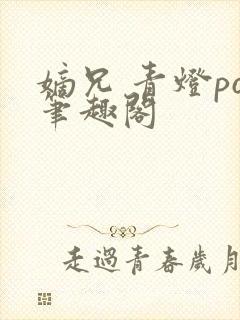 嫡兄 青燈po
筆趣閣
走過青春歲月